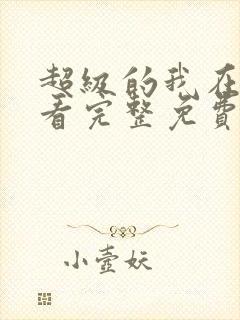 超级的我在
看完整免费
小壶妖